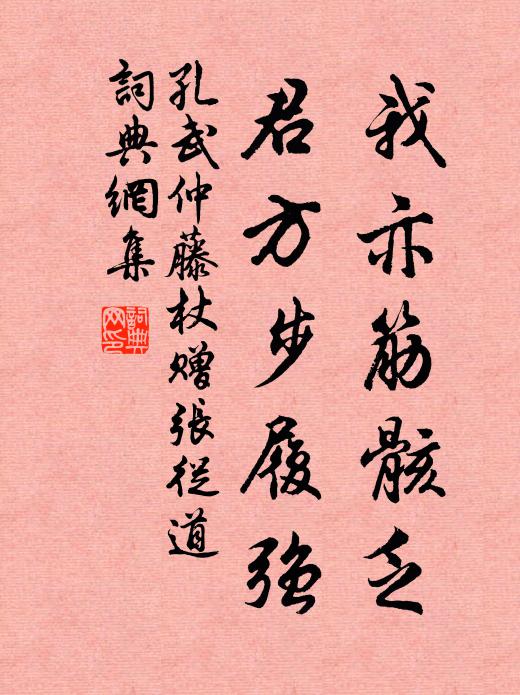 我亦筋骸乏
君方步履强
孔武仲藤杖赠張從道
詞典網集
詞典网印